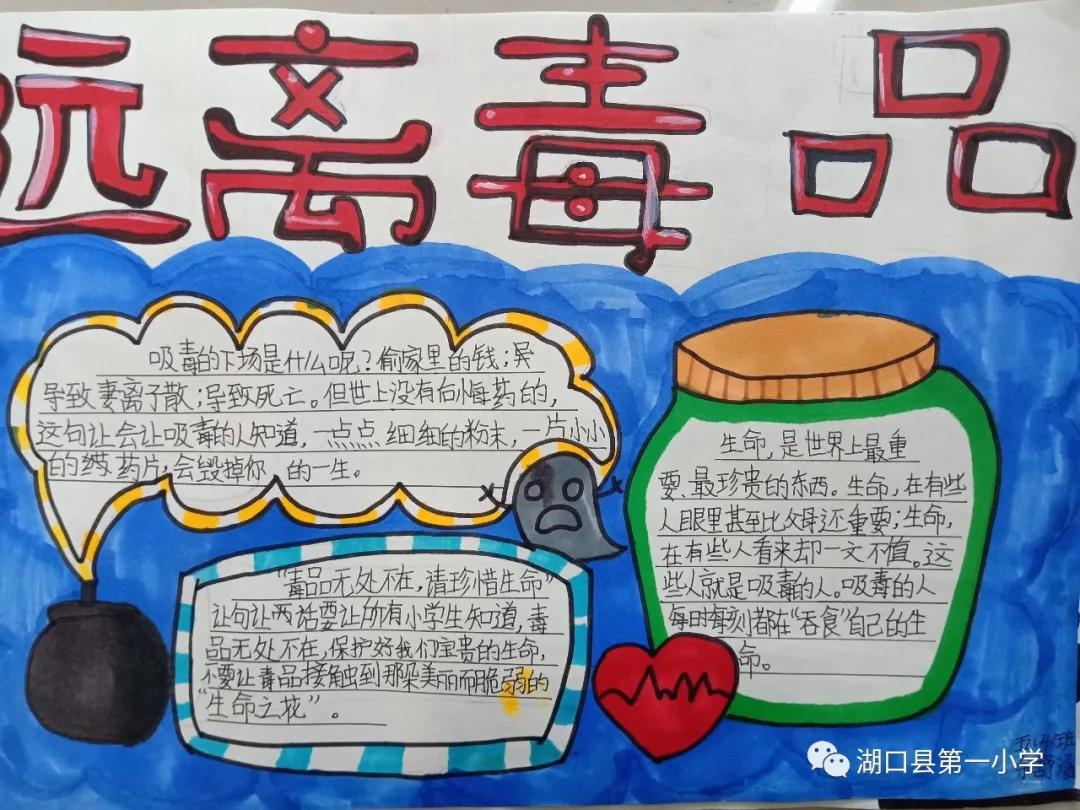 远离毒品
吸毒的下场是什么呢？偷家里的钱；
导致妻离子散；导致死亡。但世上没有后悔药的，
这句让会让吸毒的人知道，一点点细细的粉末，一片小小
的药片，会毁掉你的一生。
生命，是世界上最重
要、最珍贵的东西。生命，在有些
人眼里甚至比父母还重要；生命，
在有些人看来却一文不值。这
些人就是吸毒的人。吸毒的人
每时每刻都在“吞食”自己的生
命。
“毒品无处不在，请珍惜生命”
让句让两话要让所有小学生知道，毒
品无处不在，保护好我们宝贵的生命，
不要让毒品接触到那朵美丽而脆弱的
“生命之花”。
湖口县第一小学